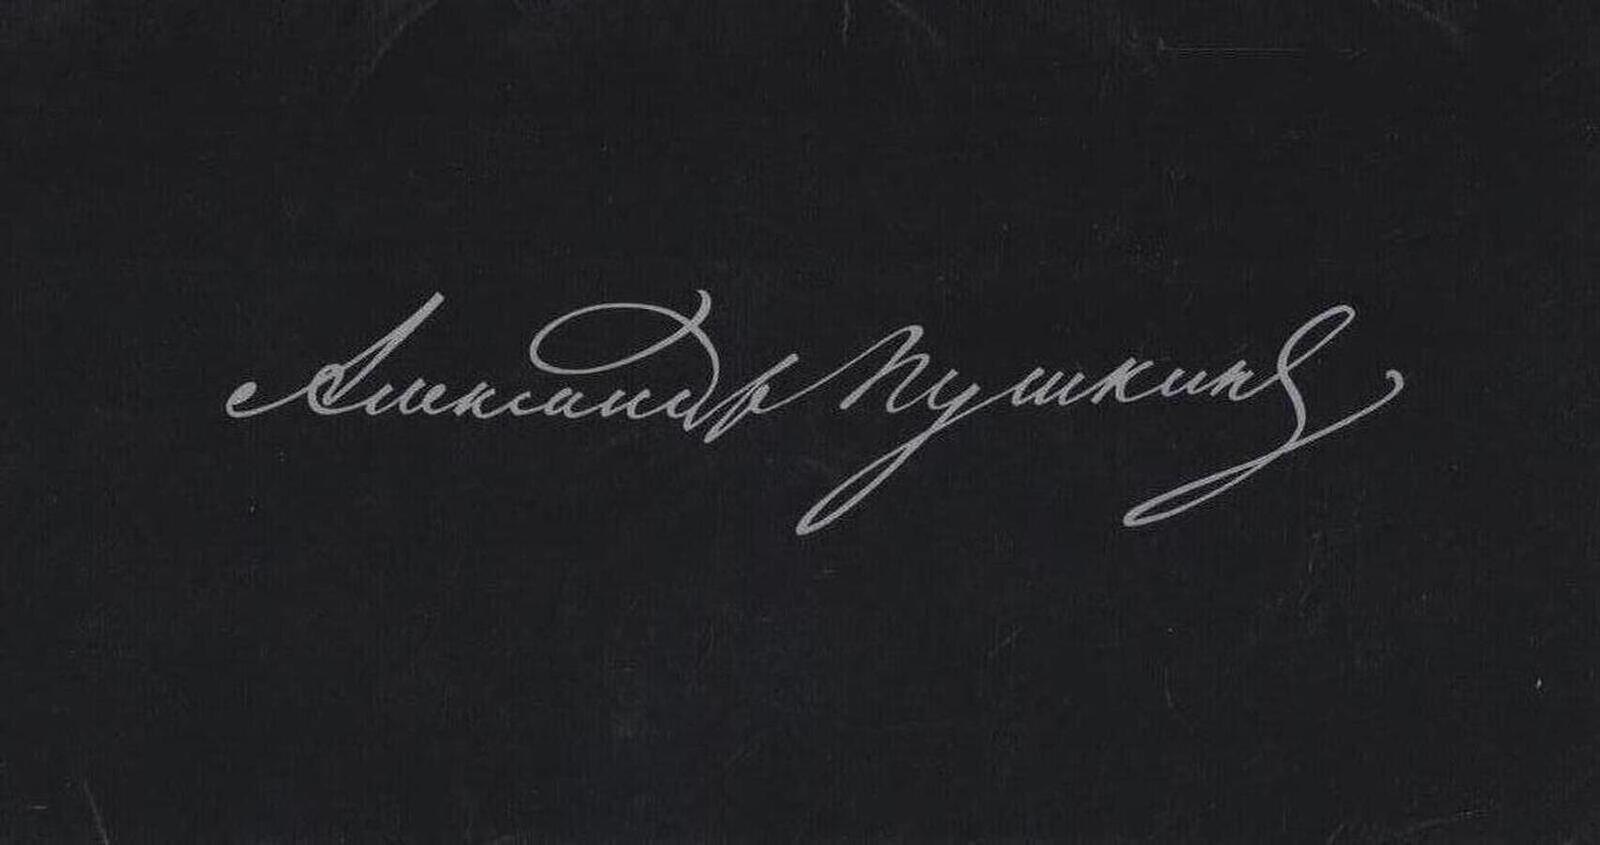 Александр Пушкинъ